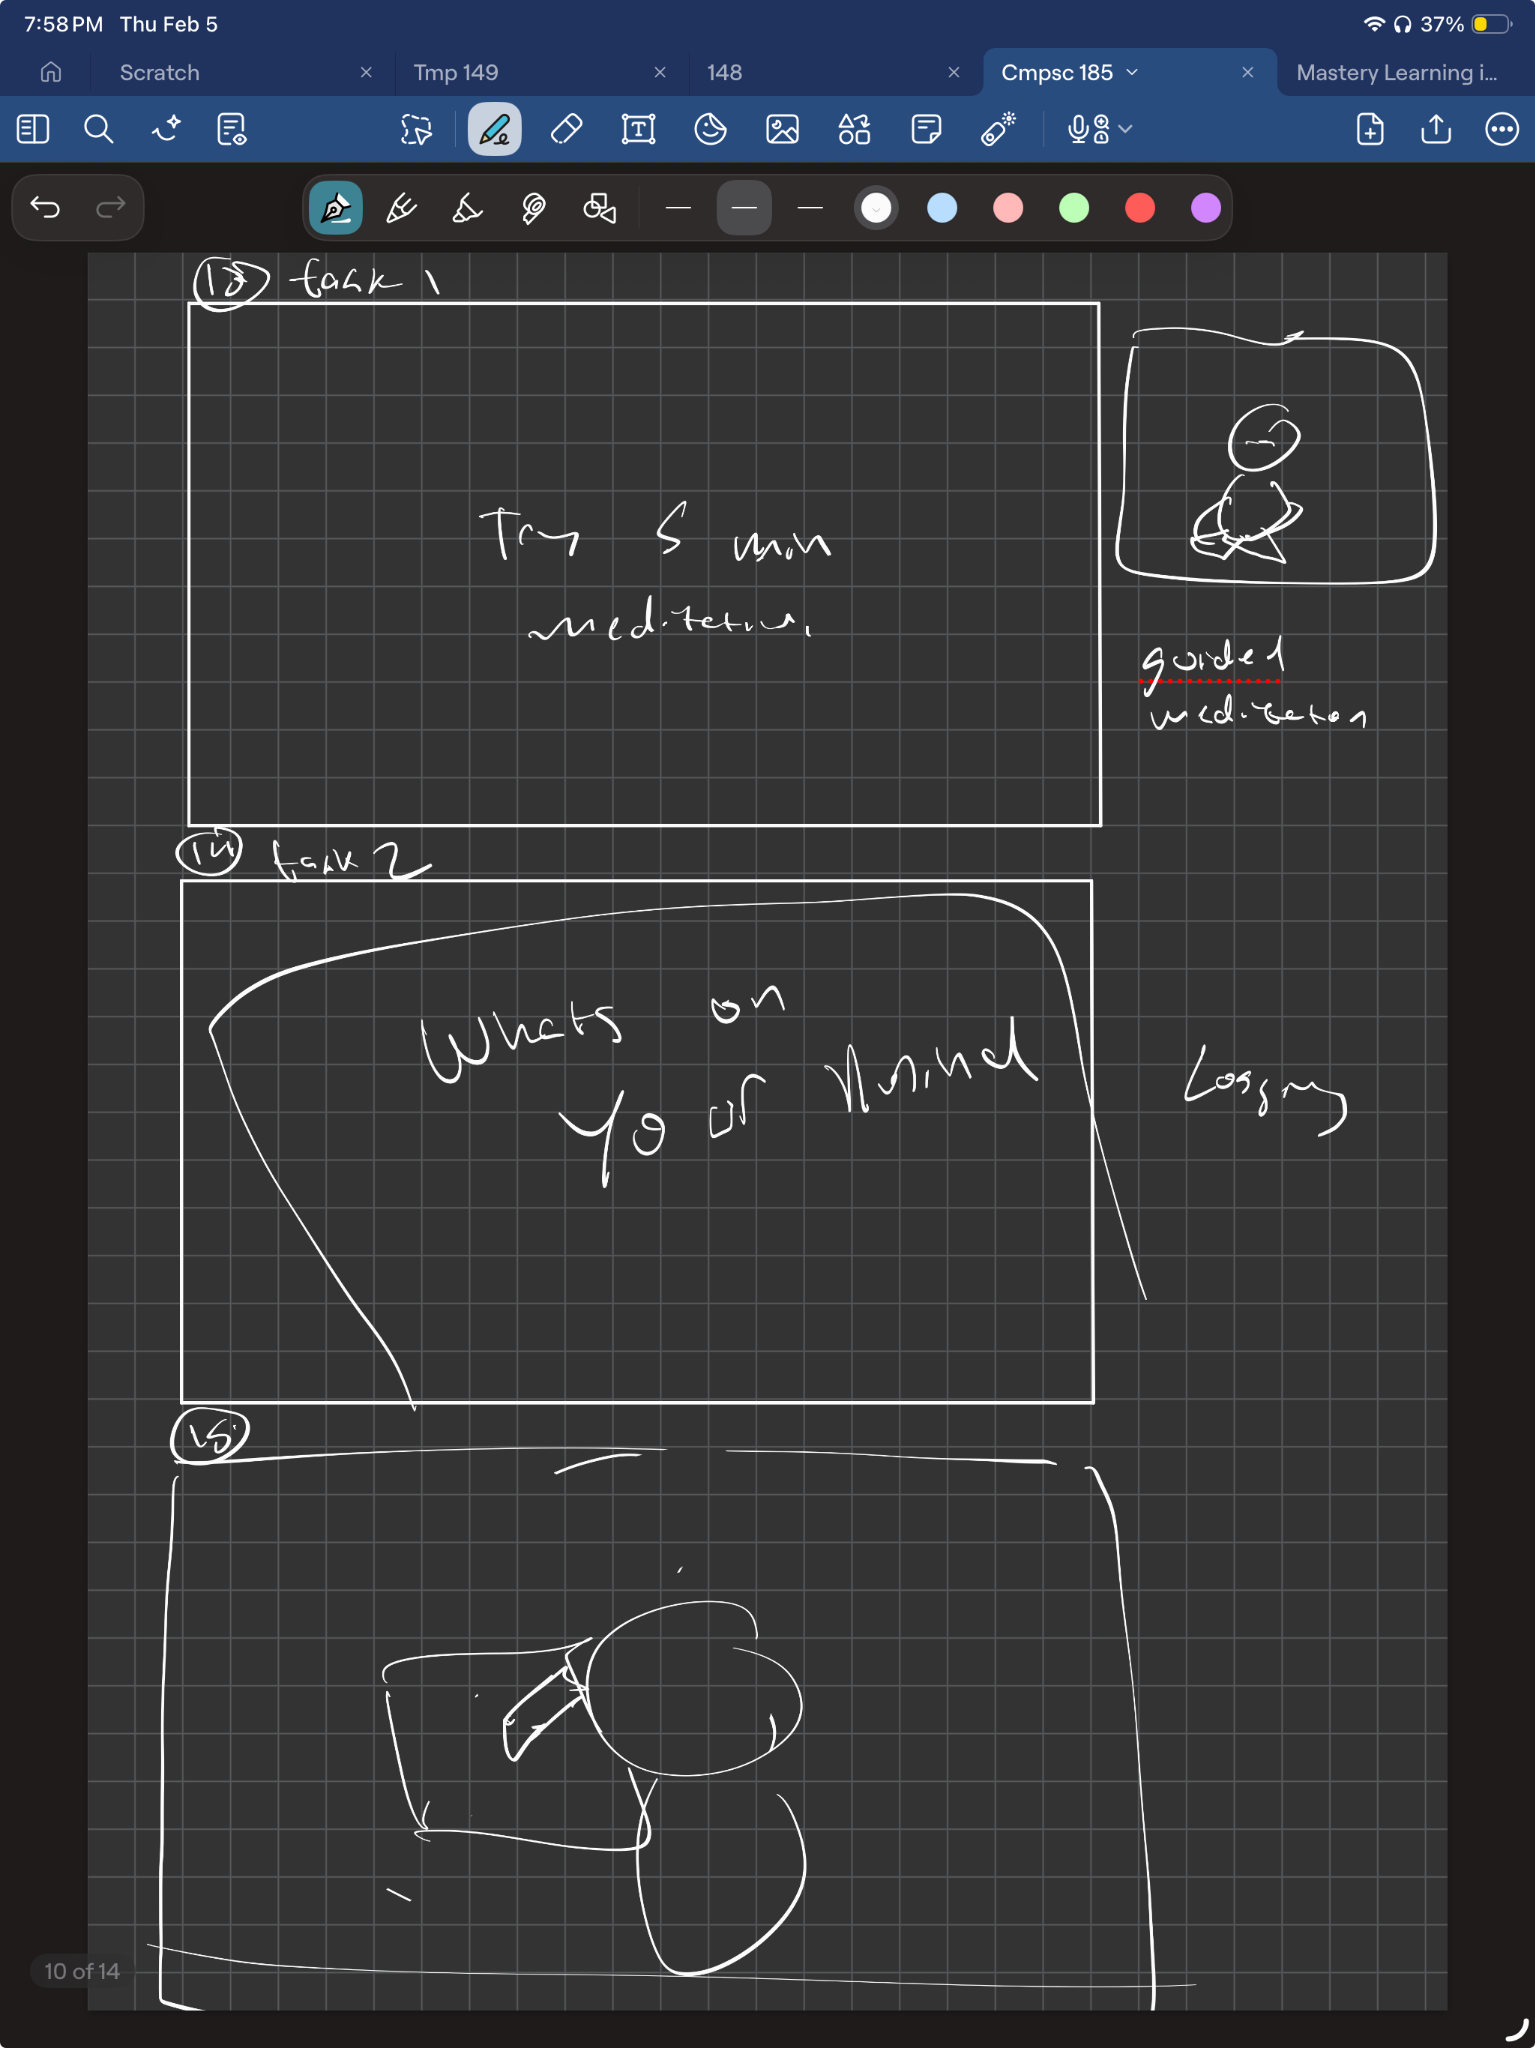 7:58 PM Thu Feb 5
37%
Scratch
Tmp 149
148
Cmpsc 185
Mastery Learning i...
13 task 1
Try 5 min
meditation
guided
meditation
14 task 2
Whats on
Your Mind
Logging
15
10 of 14